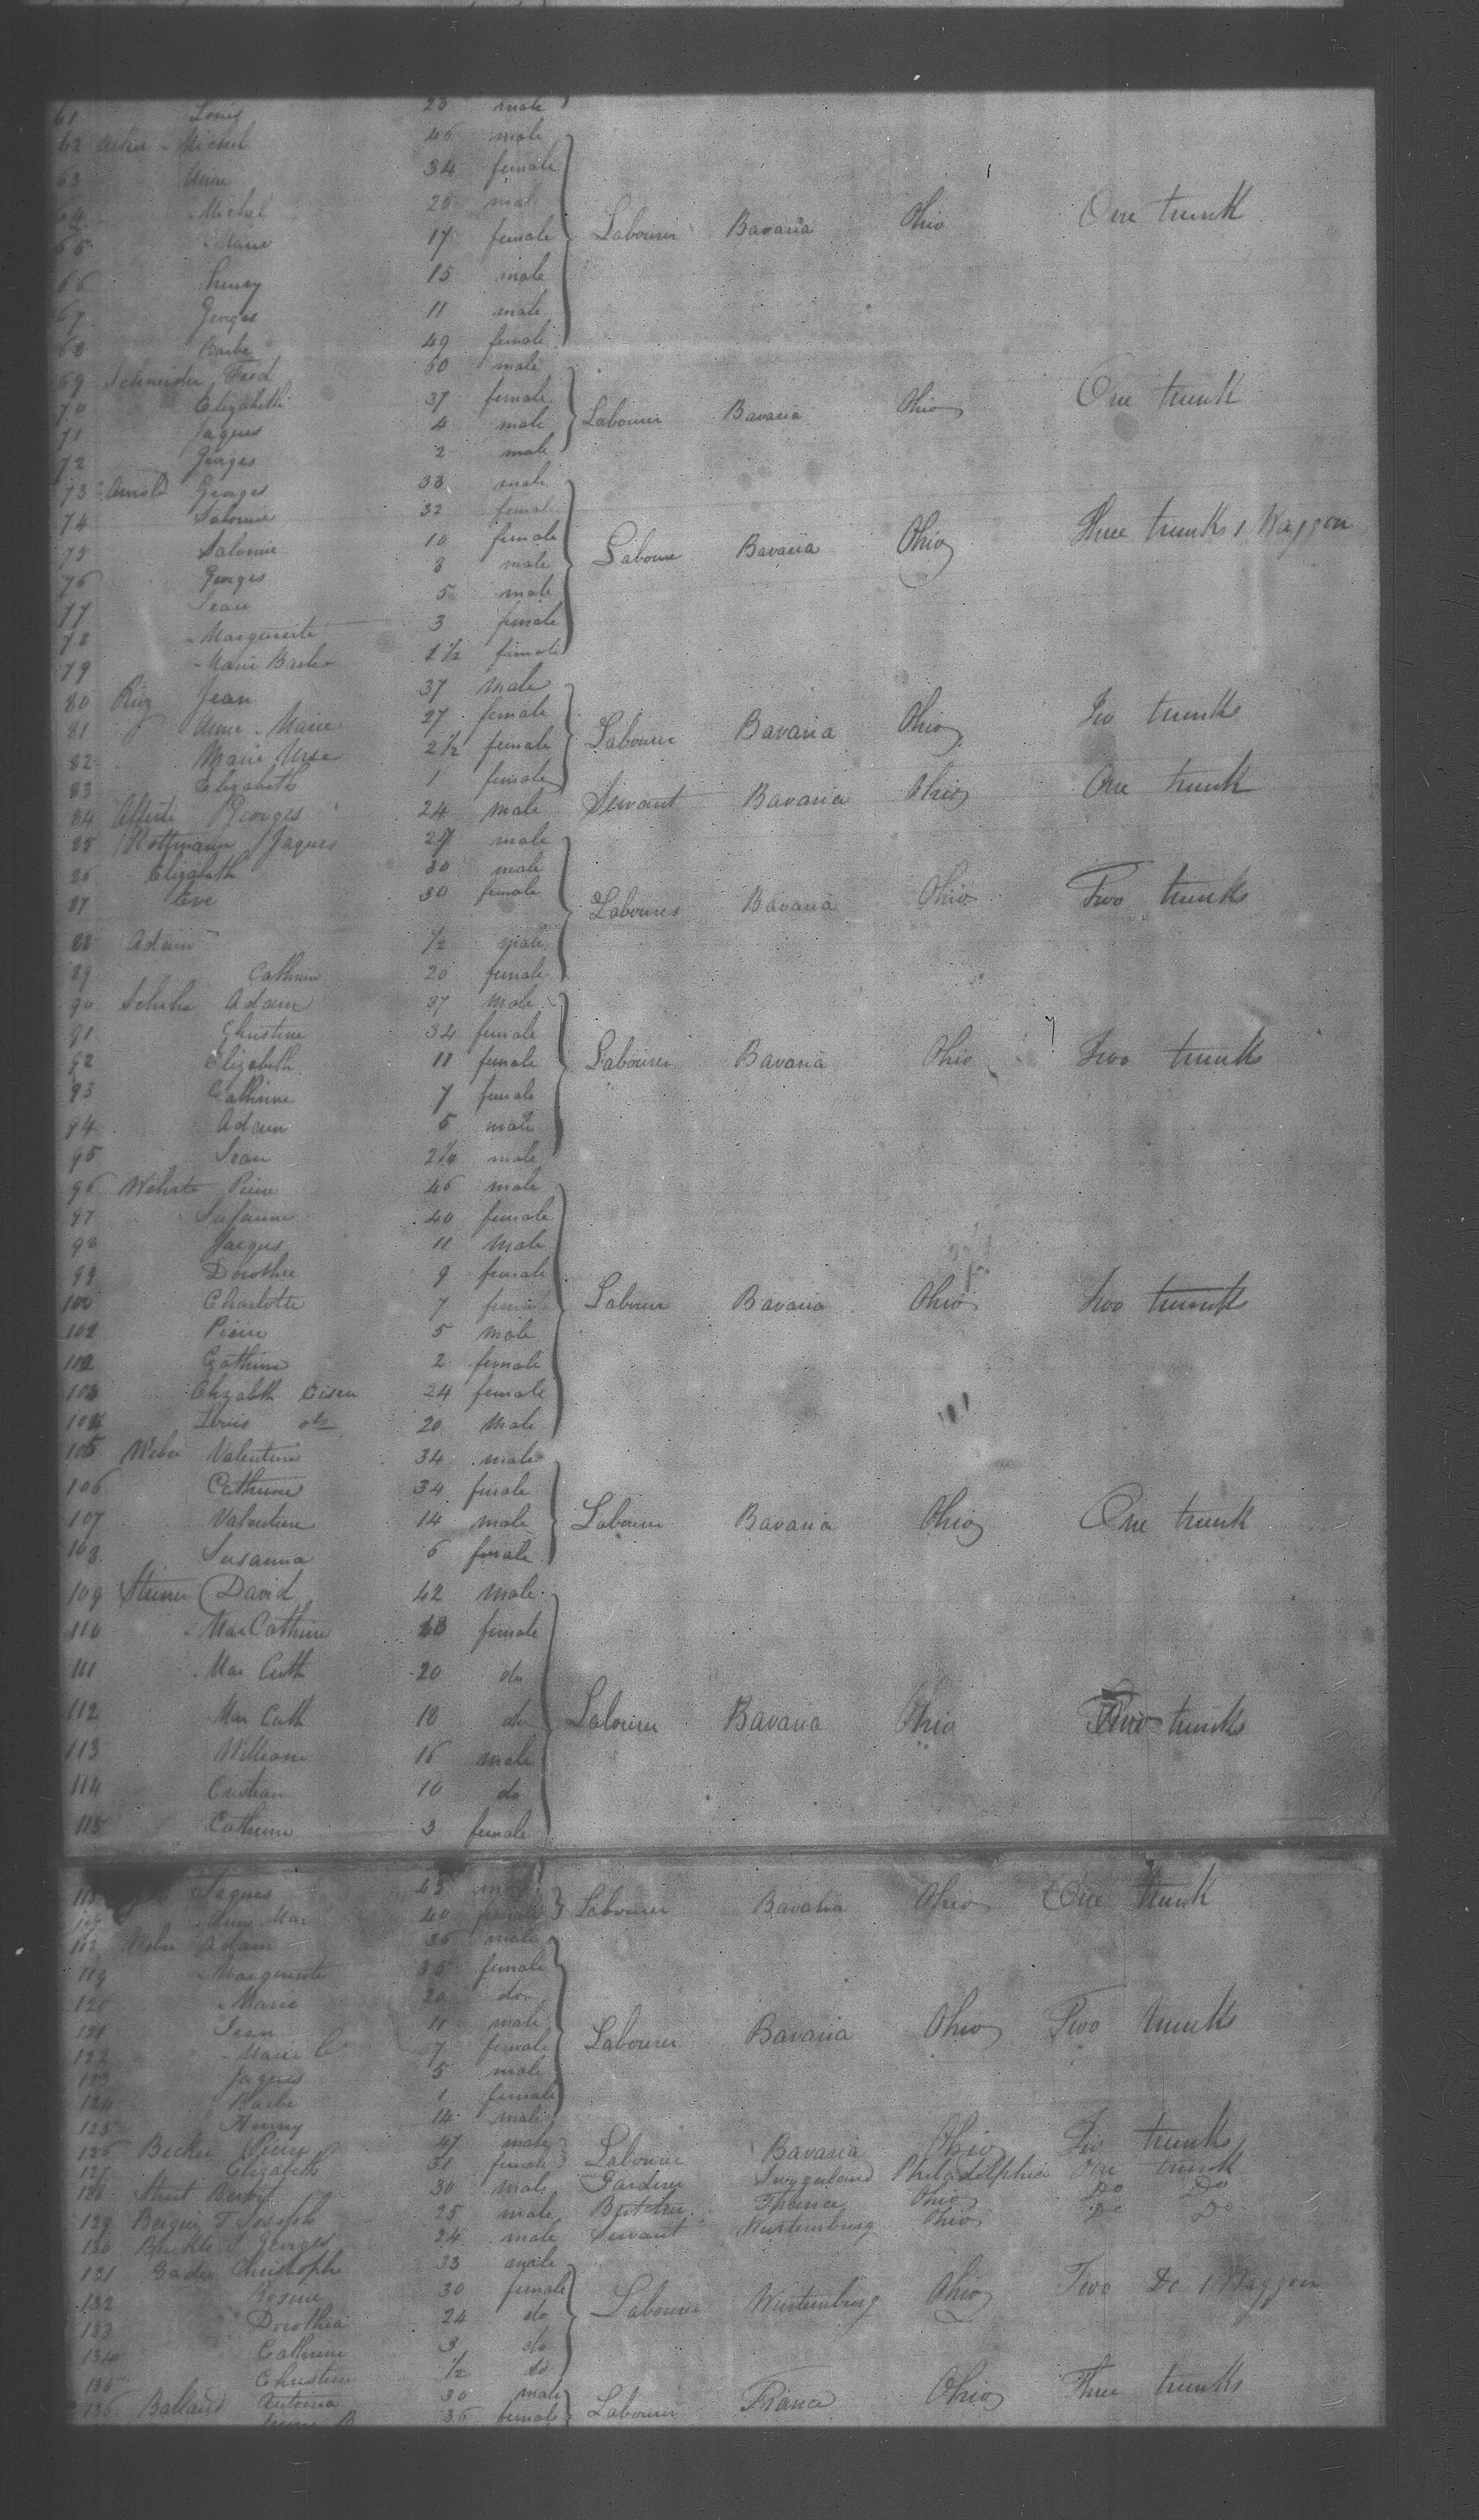 61 Louis 23 male
62 Michel 46 male
63 Anne 34 female
64 Michel 20 mal
65 Marie 17 female Labourer Bavaria Ohio One trunk
66 henry 15 male
67 Georges 11 male
68 Barbe 49 female
69 Schneider Fred 60 male
70 Elizabeth 37 female
71 Jaques 4 male Labourer Bavaria Ohio One trunk
72 Georges 2 male
73 Arnold Georges 33 male
74 Salomie 32 femal
75 Salomie 10 female Labourer Bavaria Ohio Three trunks 1 Waggon
76 Georges 8 male
77 Jean 5 male
78 Marguerite 3 female
79 Marie Barbe 1½ female
80 Jean 37 male
81 Anne Marie 27 female Labourer Bavaria Ohio Two trunks
82 Marie Ursa 2½ female
83 Elizabeth 1 female
84 Georges 24 male Servant Bavaria Ohio One trunk
85 Rottmann Jaques 29 male
86 Elizabeth 30 male
87 Eve 30 female Labourers Bavaria Ohio Two trunks
88 Adam ½ male
89 Cathrin 20 female
90 Adam 37 male
91 Christine 34 female
92 Elizabeth 11 female Labourer Bavaria Ohio Two trunks
93 Cathrine 7 female
94 Adam 5 male
95 Jean 2½ male
96 Pierre 46 male
97 Susanne 40 female
98 Jacques 11 male
99 Dorothee 9 female
100 Charlotte 7 female Labourer Bavaria Ohio two trunks
101 Pierre 5 male
102 Cathrine 2 female
103 Elizabeth Eisen 24 female
104 Louis do 20 male
105 Weber Valentine 34 male
106 Cathrine 34 female
107 Valentine 14 male Labourer Bavaria Ohio One trunk
108 Susanna 6 female
109 David 42 male
110 Mar Cathrine female
111 Mar Cath 20 do
112 Mar Cath 18 do Labourer Bavaria Ohio trunks
113 William 16 male
114 Cristian 10 do
115 Cathrine 3 female
Jaques 43 Labourer Bavaria Ohio One trunk
Anne Mar 40 female
Weber Adam 36 male
119 Marguerite 35 female
120 Marie 20 do
121 Jean 11 male
122 Marie C 7 female Labourer Bavaria Ohio Two trunks
123 Jaques 5 male
124 Barbe 1 female
125 Henry 14 male
126 Becker Pierre 47 male Labourer Bavaria Ohio Two trunks
127 Elizabeth 31 female
128 30 male Gardiner Philadelphia One trunk
129 Joseph 25 male Butcher France Ohio Do Do
130 Georges 24 male Servant Wurtemburg Ohio Do Do
131 Christophe 33 male
132 Rosine 30 female Labourer Wurtemburg Ohio Two Do 1 Waggon
133 Dorothea 24 do
134 Cathrine 3 do
135 Christine ½ do
136 Balland 30 male Labourer France Ohio Three trunks
36 female